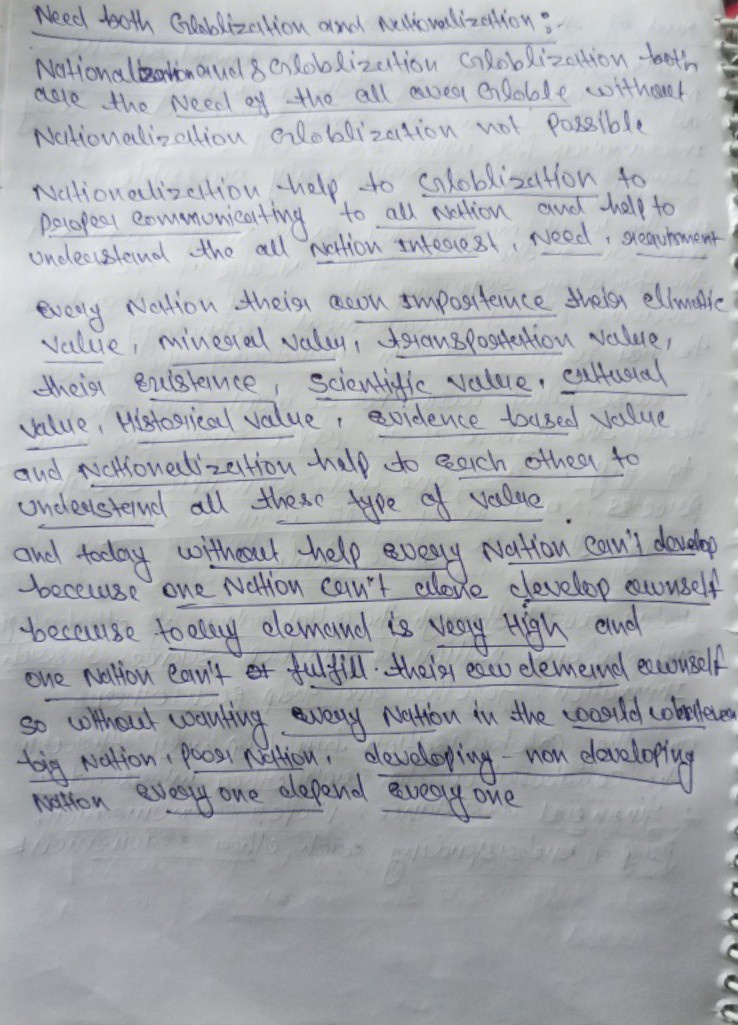 Need both Globlization and Nationalization :-
Nationalization and & Globlization Globlization both
are the Need of the all over Globle without
Nationalization Globlization not Possible
Nationalization help to Globlization to
Proper communicating to all Nation and help to
understand the all Nation Interest, Need, requirment
Every Nation their own Importance their climatic
value, mineral valu, transportation value,
their Existence, Scientific value, cultural
value, Historical value, Evidence based value
and Nationalization help to Each other to
understand all these type of value
and today without help Every Nation can't develop
because one Nation can't alone develop ownself
because today demand is very High and
one Nation can't fulfill their demend ownself
so without wanting Every Nation in the world
big Nation, Poor Nation, developing - non developing
Nation Every one depend Every one